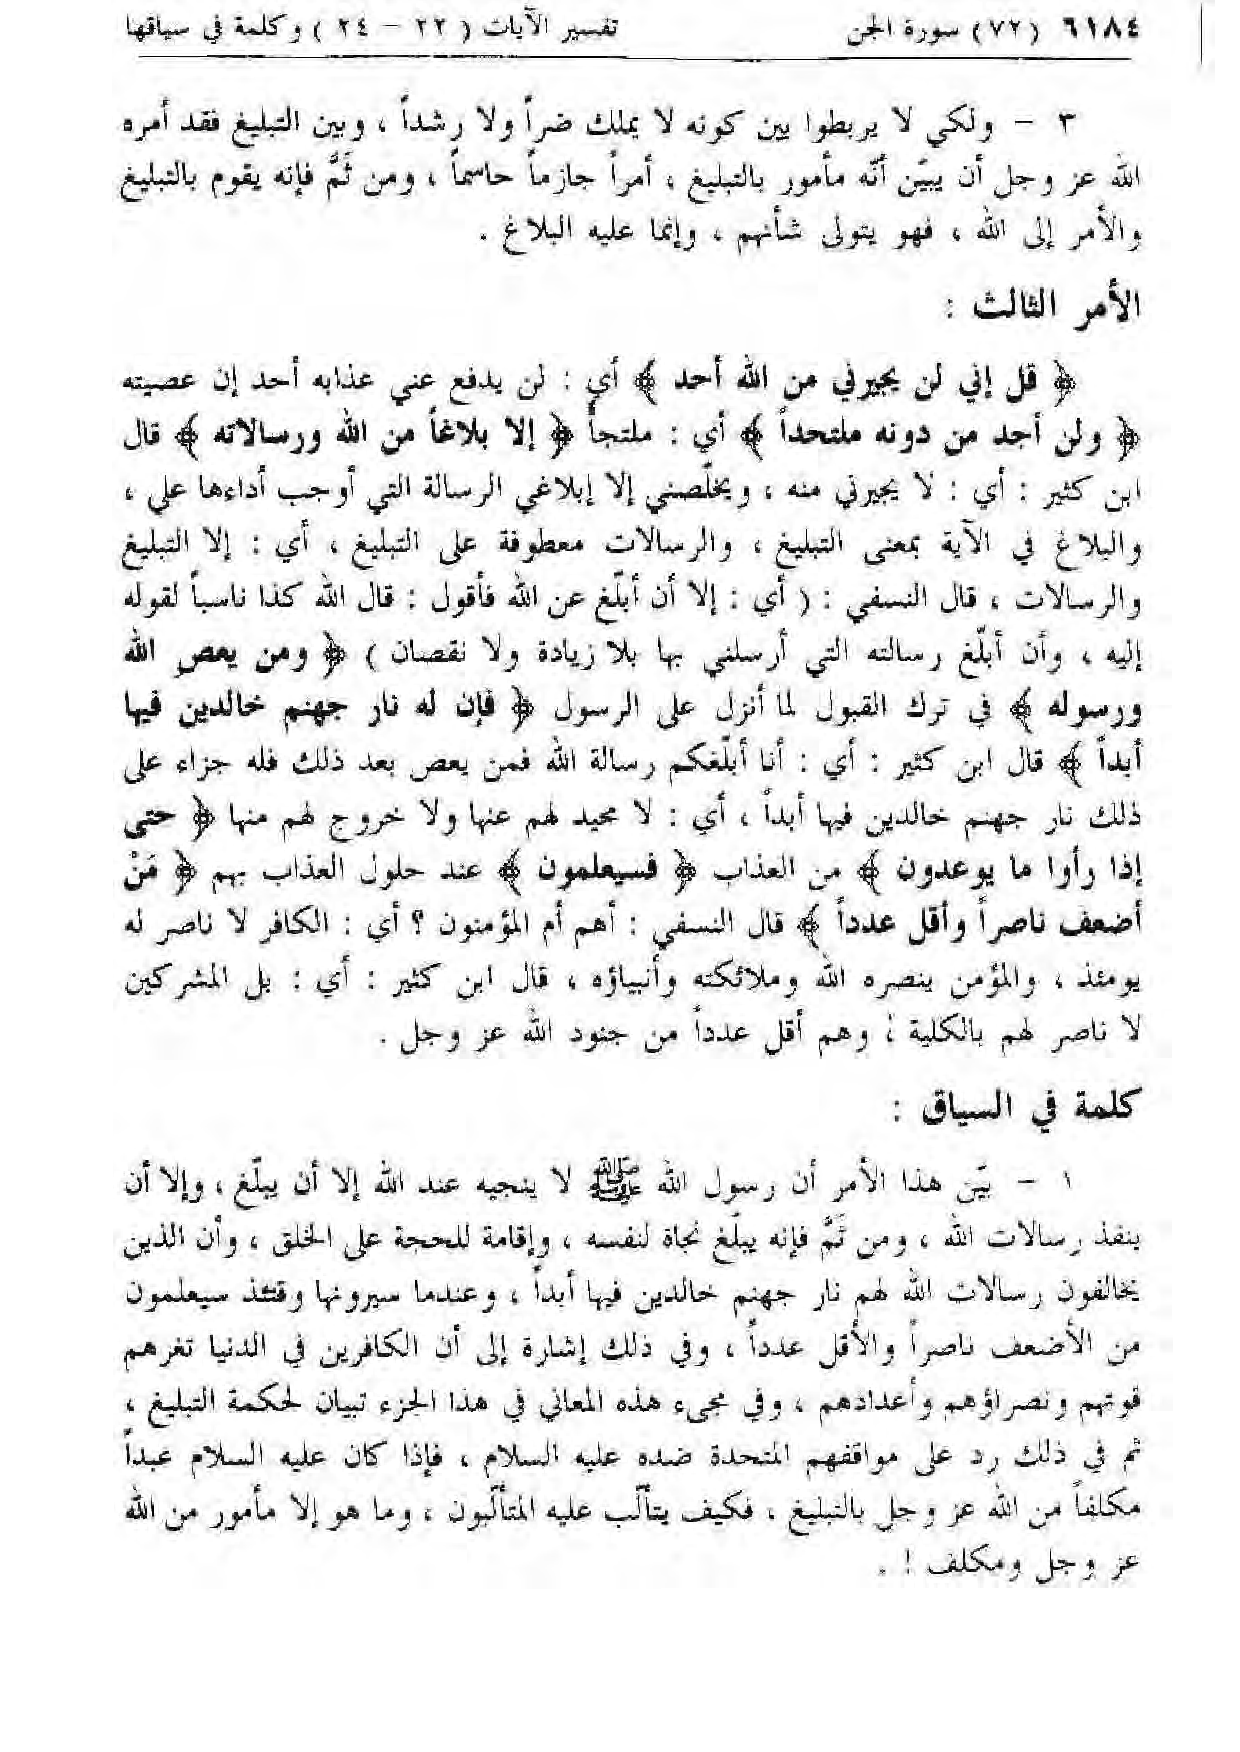 ٦١٨٤ (٧٢) سورة الجن تفسير الآيات ( ٢٢ - ٢٤ ) وكلمة في سياقها
٣ - ولكي لا يربطوا بين كونه لا يملك ضراً ولا رشداً ، وبين التبليغ فقد أمره
الله عز وجل أن يبيّن أنّه مأمور بالتبليغ ، أمراً جازماً حاسماً ، ومن ثَمَّ فإنه يقوم بالتبليغ
والأمر إلى الله ، فهو يتولى شأنهم ، وإنما عليه البلاغ .
الأمر الثالث :
﴿ قل إني لن يجيرني من الله أحد ﴾ أي : لن يدفع عني عذابه أحد إن عصيته
﴿ ولن أجد من دونه ملتحداً ﴾ أي : ملتجأ ﴿ إلا بلاغاً من الله ورسالاته ﴾ قال
ابن كثير : أي : لا يجيرني منه ، ويخلّصني إلا إبلاغي الرسالة التي أوجب أداءها علي ،
والبلاغ في الآية بمعنى التبليغ ، والرسالات معطوفة على التبليغ ، أي : إلا التبليغ
والرسالات ، قال النسفي : ( أي : إلا أن أبلّغ عن الله فأقول : قال الله كذا ناسباً لقوله
إليه ، وأن أبلّغ رسالته التي أرسلني بها بلا زيادة ولا نقصان ) ﴿ ومن يعص الله
ورسوله ﴾ في ترك القبول لما أنزل على الرسول ﴿ فإن له نار جهنم خالدين فيها
أبداً ﴾ قال ابن كثير : أي : أنا أبلّغكم رسالة الله فمن يعص بعد ذلك فله جزاء على
ذلك نار جهنم خالدين فيها أبداً ، أي : لا محيد لهم عنها ولا خروج لهم منها ﴿ حتى
إذا رأوا ما يوعدون ﴾ من العذاب ﴿ فسيعلمون ﴾ عند حلول العذاب بهم ﴿ مَنْ
أضعف ناصراً وأقل عدداً ﴾ قال النسفي : أهم أم المؤمنون ؟ أي : الكافر لا ناصر له
يومئذ ، والمؤمن ينصره الله وملائكته وأنبياؤه ، قال ابن كثير : أي : بل المشركين
لا ناصر لهم بالكلية ؛ وهم أقل عدداً من جنود الله عز وجل .
كلمة في السياق :
١ - بيّن هذا الأمر أن رسول الله ﷺ لا ينجيه عند الله إلا أن يبلّغ ، وإلا أن
ينفذ رسالات الله ، ومن ثَمَّ فإنه يبلّغ نجاة لنفسه ، وإقامة للحجة على الخلق ، وأن الذين
يخالفون رسالات الله لهم نار جهنم خالدين فيها أبداً ، وعندما سيرونها وقتئذ سيعلمون
من الأضعف ناصراً والأقل عدداً ، وفي ذلك إشارة إلى أن الكافرين في الدنيا تغرهم
قوتهم ونصراؤهم وأعدادهم ، وفي مجيء هذه المعاني في هذا الجزء تبيان لحكمة التبليغ ،
ثم في ذلك رد على مواقفهم المتحدة ضده عليه السلام ، فإذا كان عليه السلام عبداً
مكلفاً من الله عز وجل بالتبليغ ، فكيف يتألّب عليه المتألّبون ، وما هو إلا مأمور من الله
عز وجل ومكلف ! .